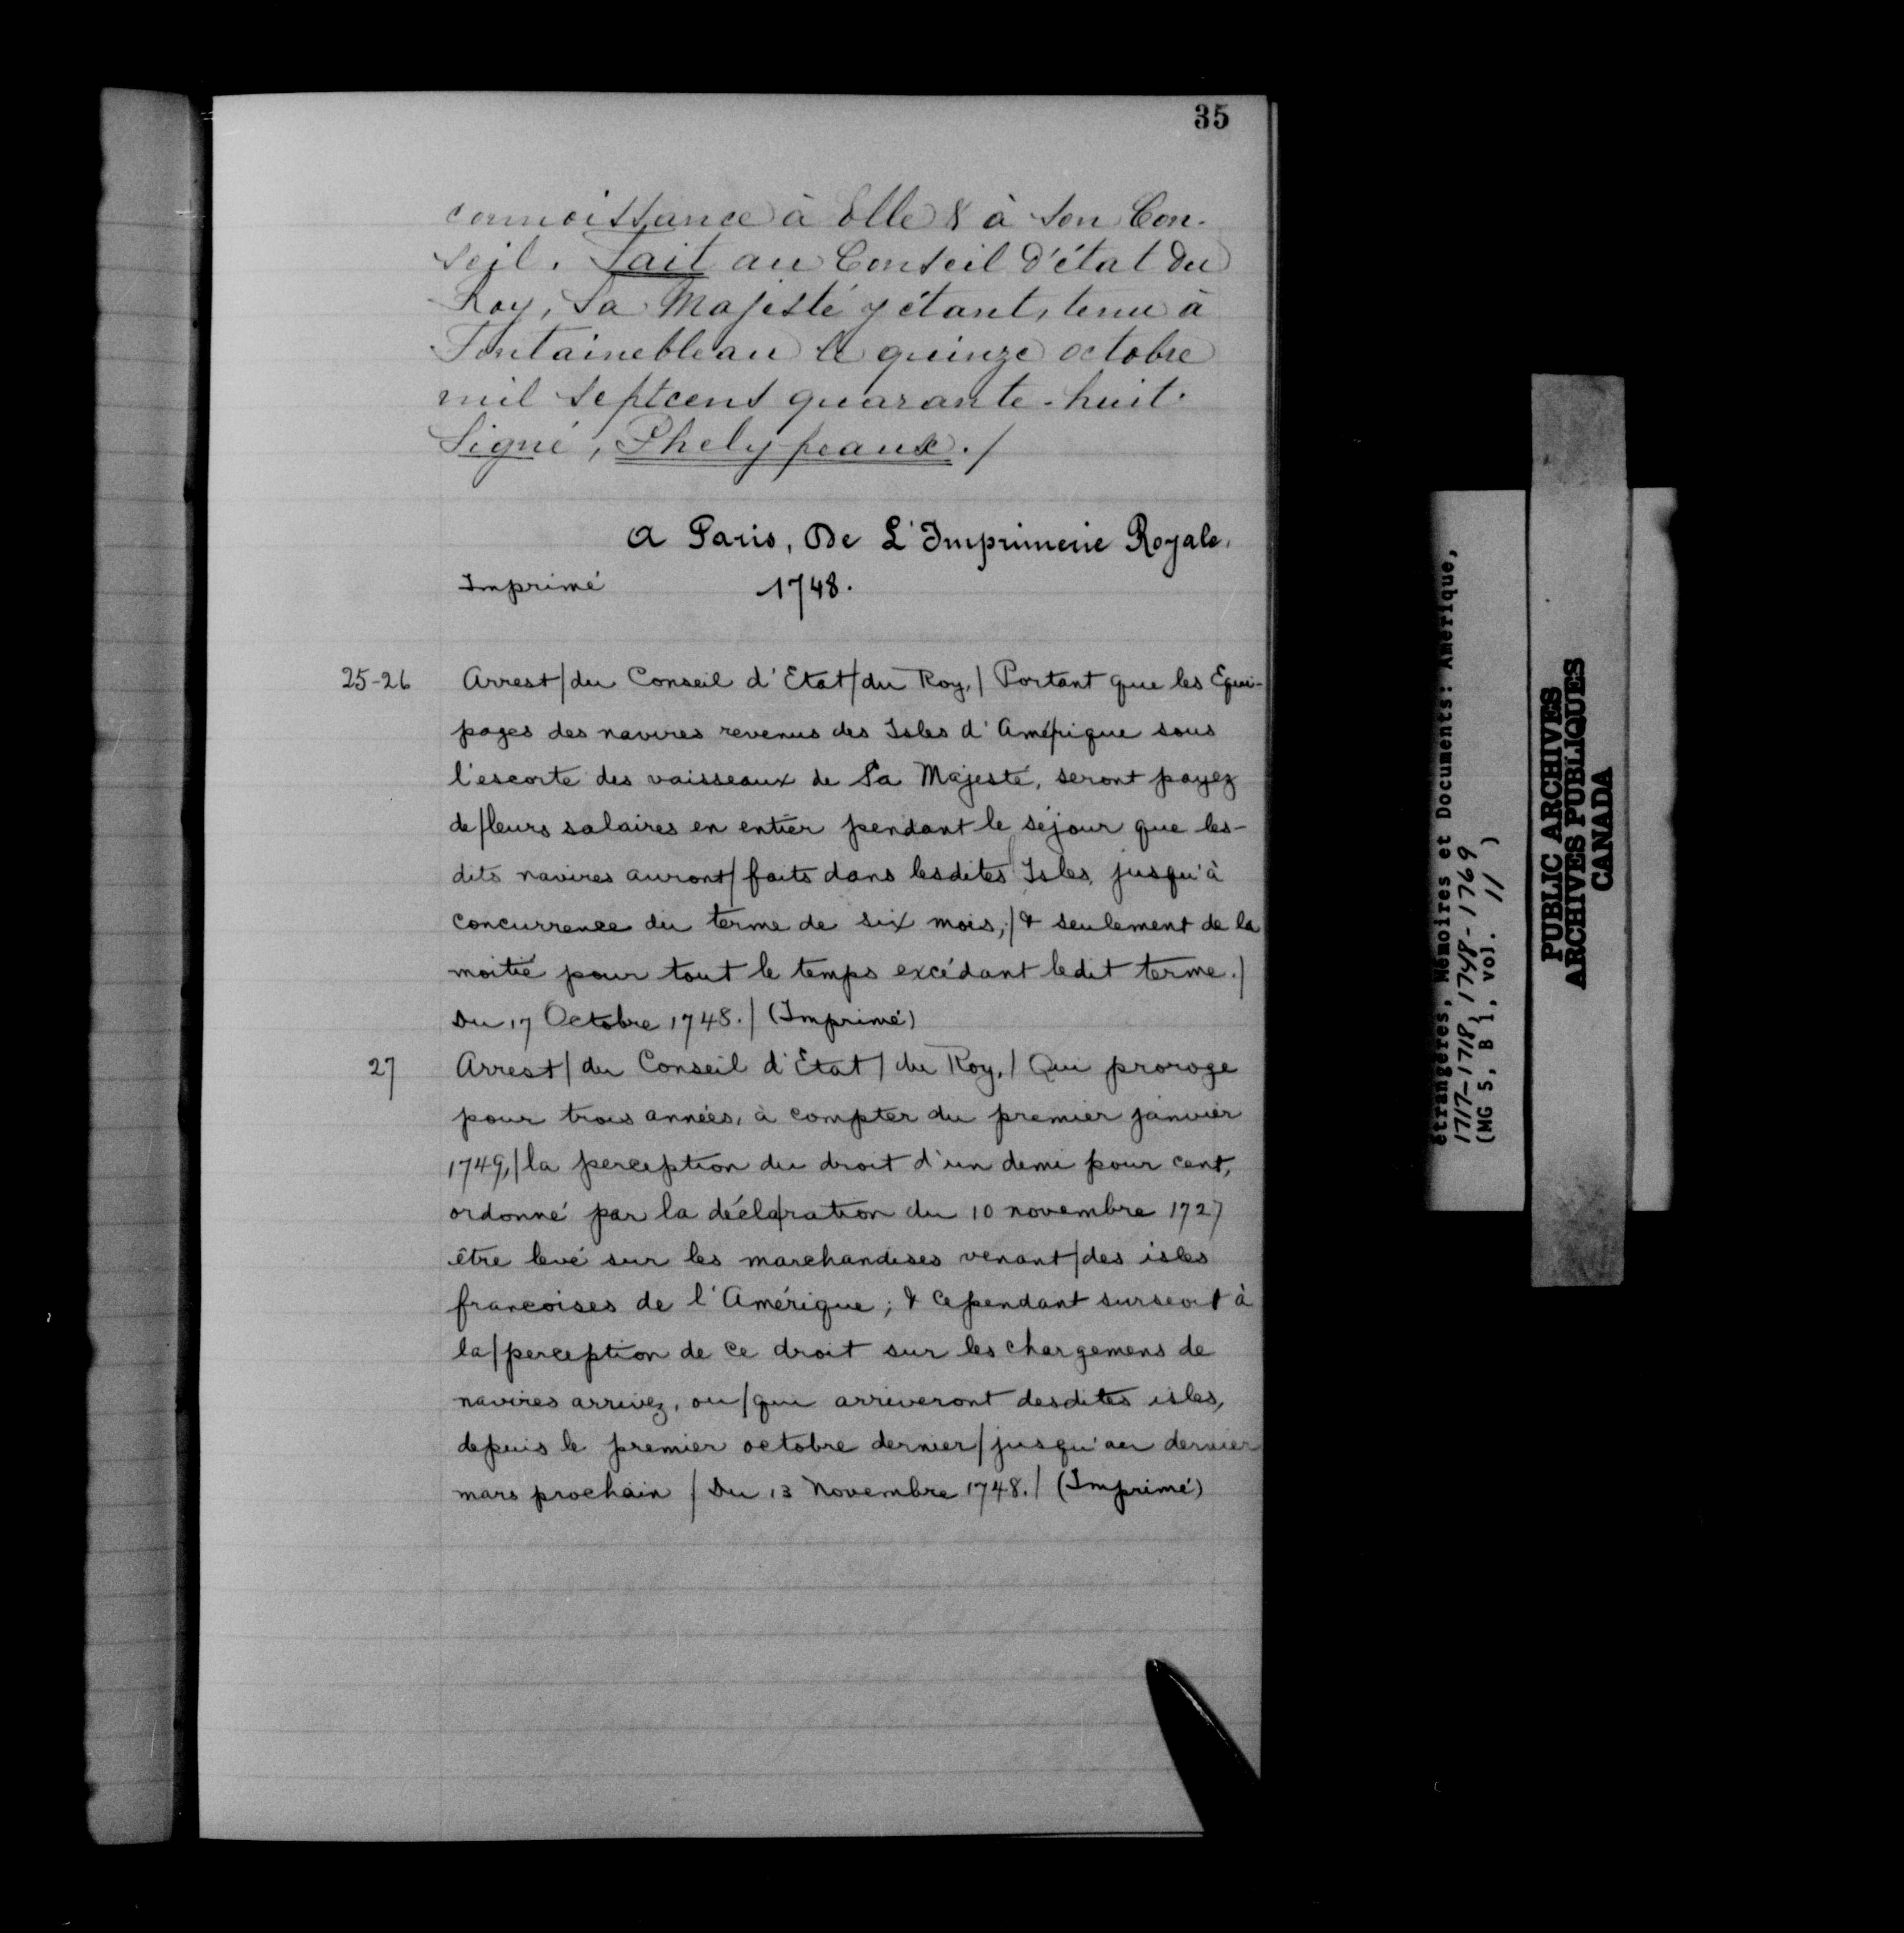 35
connoissance à Elle & à son Con-
seil. Fait au Conseil d'état du
Roy, Sa Majesté y étant, tenu à
Fontainebleau le quinze octobre
mil septcens quarante-huit.
Signé, Phelypeaux./
A Paris, De L'Imprimerie Royale,
Imprimé 1748.
25-26 Arrest/du Conseil d'Etat/du Roy,/Portant que les Equi-
pages des navires revenus des Isles d'Amé/rique sous
l'escorte des vaisseaux de Sa Majesté, seront payez
de/leurs salaires en entier pendant le séjour que les-
dits navires auront/faits dans lesdites Isles, jusqu'à
concurrence du terme de six mois,/& seulement de la
moitié pour tout le temps excédant ledit terme./
Du 17 Octobre 1748./(Imprimé)
27 Arrest/du Conseil d'Etat/du Roy,/Qui proroge
pour trois années, à compter du premier janvier
1749,/la perception du droit d'un demi pour cent,
ordonné par la décla/ration du 10 novembre 1727
être levé sur les marchandises venant/des isles
françoises de l'Amérique; & cependant surseoit à
la/perception de ce droit sur les chargemens de
navires arrivez, ou/qui arriveront desdites isles,
depuis le premier octobre dernier/jusqu'au dernier
mars prochain/Du 13 Novembre 1748./(Imprimé)
étrangères, Mémoires et Documents: Amérique,
1717-1718, 1748-1769
(MG 5, B 1, vol. 11 )
PUBLIC ARCHIVES
ARCHIVES PUBLIQUES
CANADA